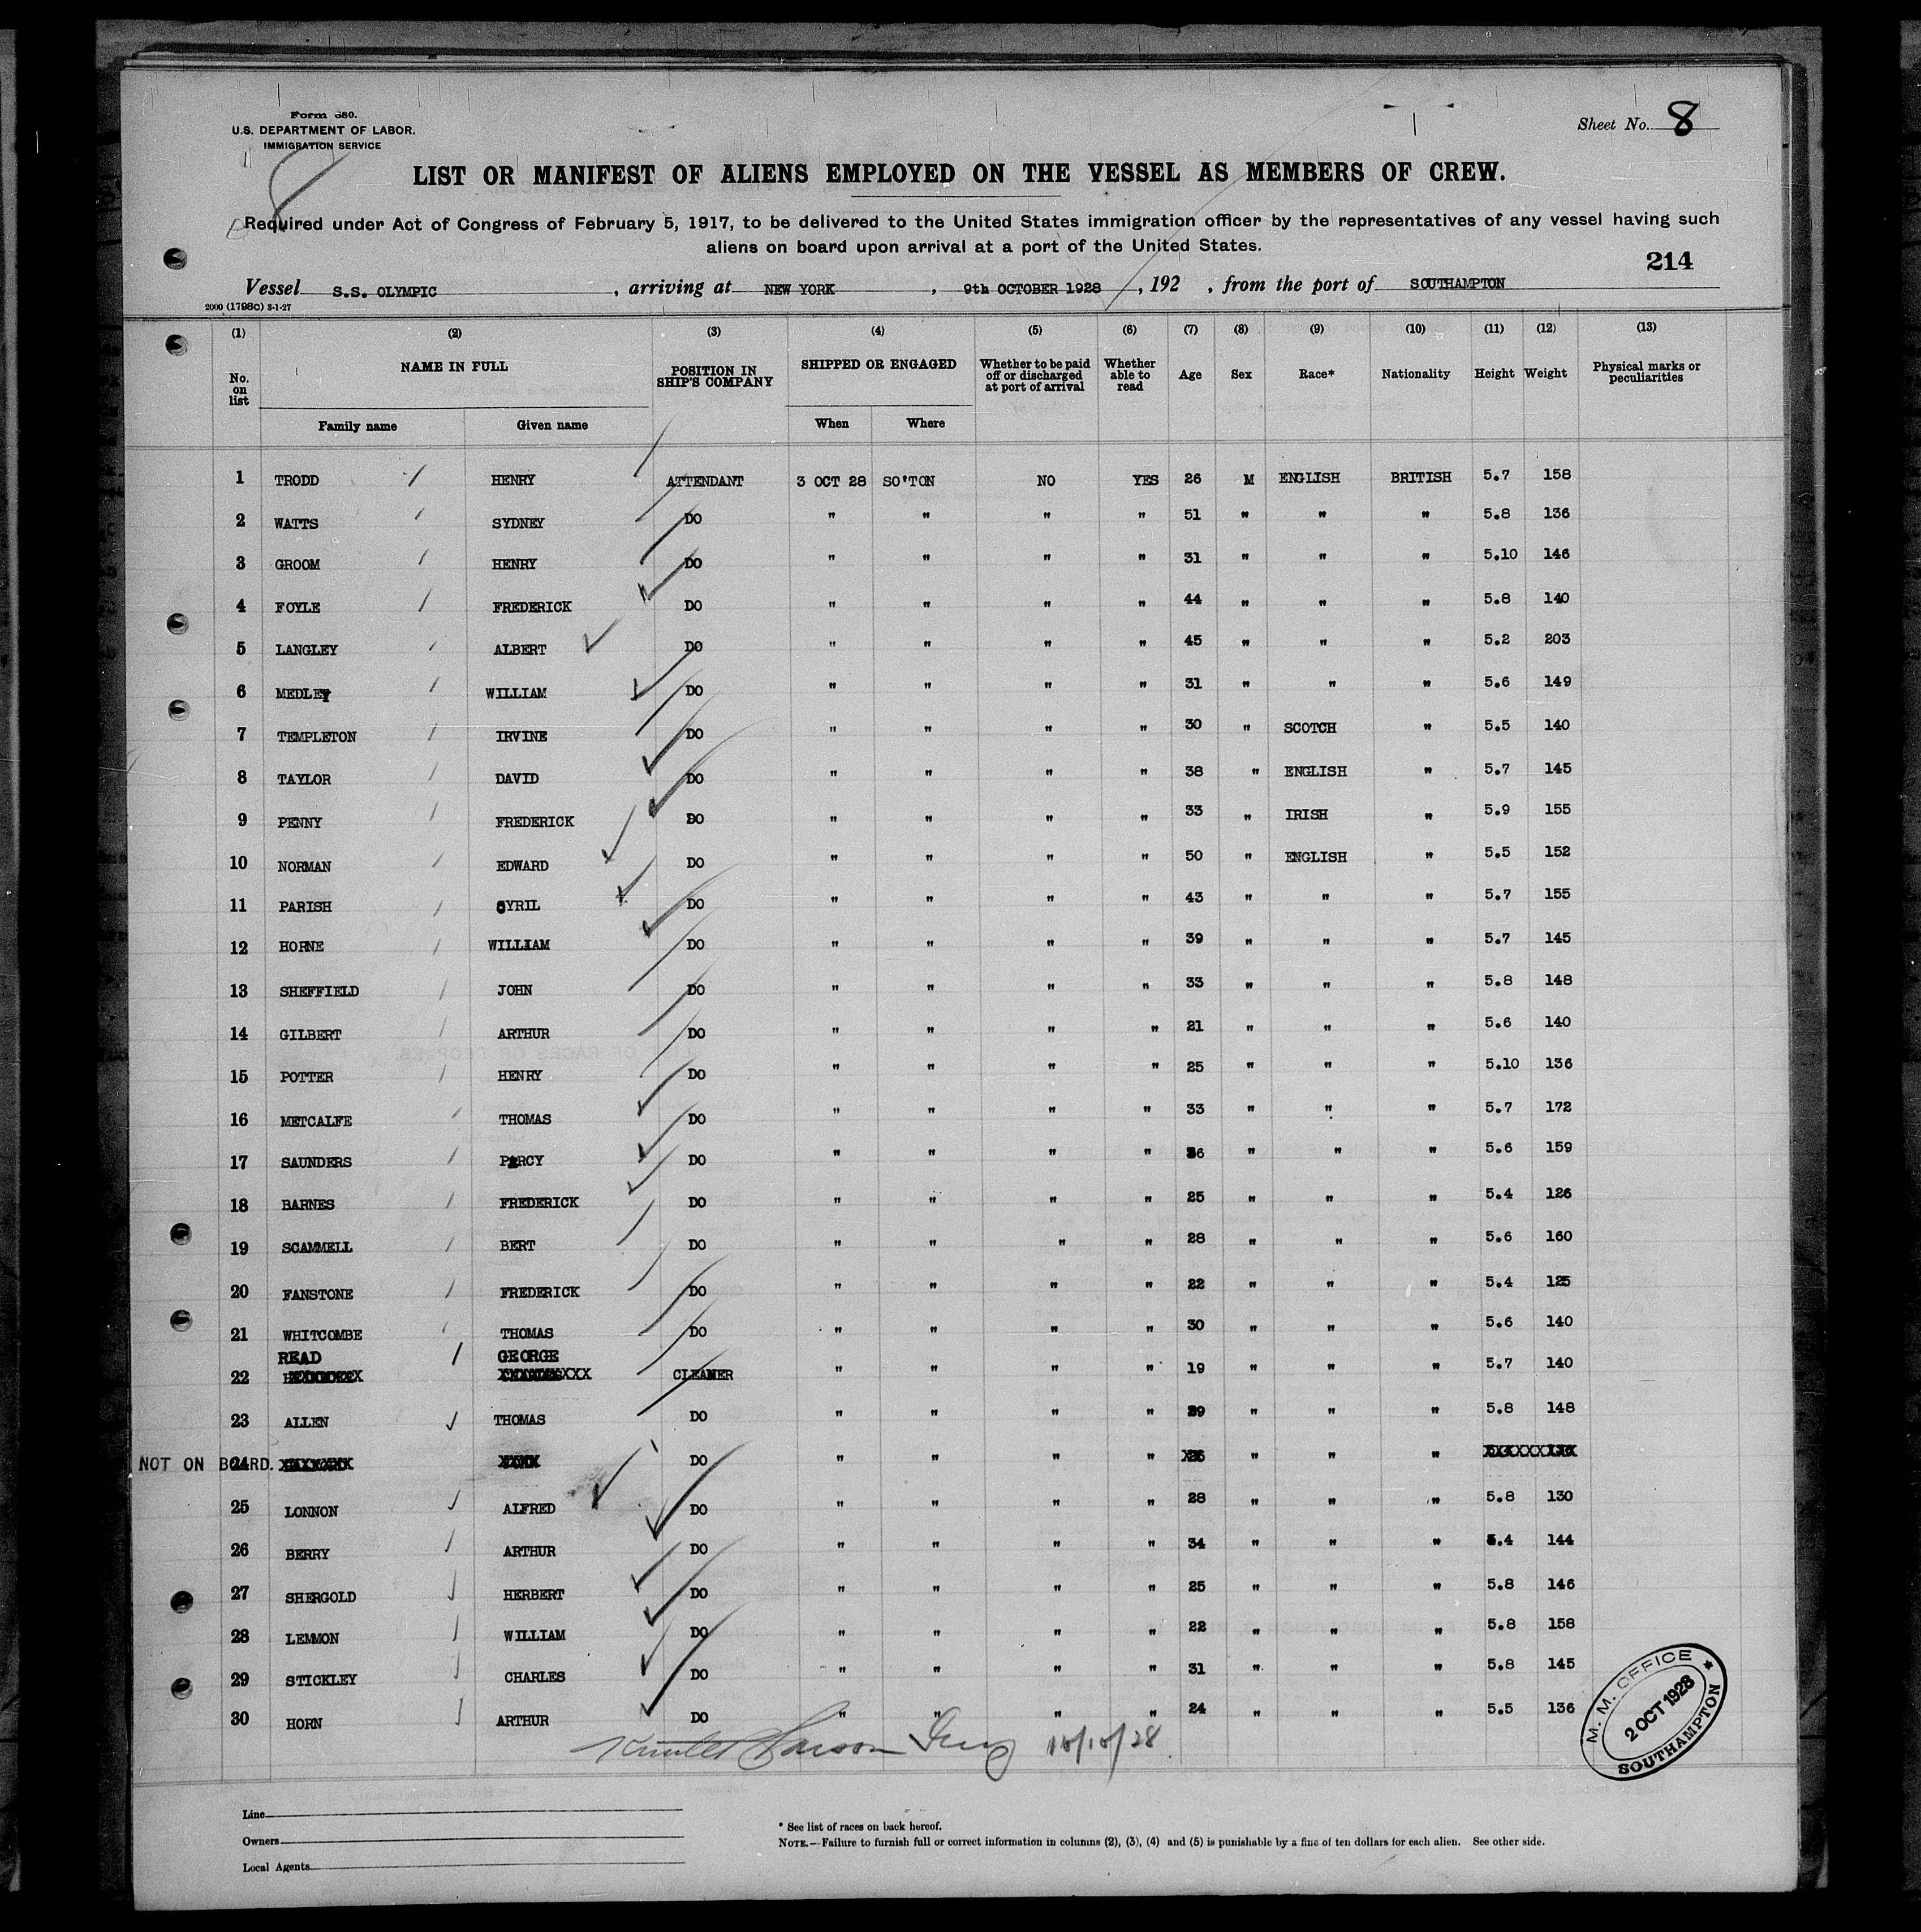 Form 680.
U.S. DEPARTMENT OF LABOR.
IMMIGRATION SERVICE
Sheet No. 8
LIST OR MANIFEST OF ALIENS EMPLOYED ON THE VESSEL AS MEMBERS OF CREW.
Required under Act of Congress of February 5, 1917, to be delivered to the United States immigration officer by the representatives of any vessel having such
aliens on board upon arrival at a port of the United States.
214
Vessel S.S. OLYMPIC, arriving at NEW YORK, 9th OCTOBER 1928, 192 , from the port of SOUTHAMPTON
2000 (1798C) 3-1-27
(1) (2) (3) (4) (5) (6) (7) (8) (9) (10) (11) (12) (13)
No. on list NAME IN FULL POSITION IN SHIP'S COMPANY SHIPPED OR ENGAGED Whether to be paid off or discharged at port of arrival Whether able to read Age Sex Race* Nationality Height Weight Physical marks or peculiarities
Family name Given name When Where
1 TRODD HENRY ATTENDANT 3 OCT 28 SO'TON NO YES 26 M ENGLISH BRITISH 5.7 158
2 WATTS SYDNEY DO " " " " 51 " " " 5.8 136
3 GROOM HENRY DO " " " " 31 " " " 5.10 146
4 FOYLE FREDERICK DO " " " " 44 " " " 5.8 140
5 LANGLEY ALBERT DO " " " " 45 " " " 5.2 203
6 MEDLEY WILLIAM DO " " " " 31 " " " 5.6 149
7 TEMPLETON IRVINE DO " " " " 30 " SCOTCH " 5.5 140
8 TAYLOR DAVID DO " " " " 38 " ENGLISH " 5.7 145
9 PENNY FREDERICK DO " " " " 33 " IRISH " 5.9 155
10 NORMAN EDWARD DO " " " " 50 " ENGLISH " 5.5 152
11 PARISH CYRIL DO " " " " 43 " " " 5.7 155
12 HORNE WILLIAM DO " " " " 39 " " " 5.7 145
13 SHEFFIELD JOHN DO " " " " 33 " " " 5.8 148
14 GILBERT ARTHUR DO " " " " 21 " " " 5.6 140
15 POTTER HENRY DO " " " " 25 " " " 5.10 136
16 METCALFE THOMAS DO " " " " 33 " " " 5.7 172
17 SAUNDERS PERCY DO " " " " 36 " " " 5.6 159
18 BARNES FREDERICK DO " " " " 25 " " " 5.4 126
19 SCAMMELL BERT DO " " " " 28 " " " 5.6 160
20 FANSTONE FREDERICK DO " " " " 22 " " " 5.4 125
21 WHITCOMBE THOMAS DO " " " " 30 " " " 5.6 140
READ GEORGE
22 CLEANER " " " " 19 " " " 5.7 140
23 ALLEN THOMAS DO " " " " 39 " " " 5.8 148
NOT ON BOARD. 24 DO " " " " " " "
25 LONNON ALFRED DO " " " " 28 " " " 5.8 130
26 BERRY ARTHUR DO " " " " 34 " " " 5.4 144
27 SHERGOLD HERBERT DO " " " " 25 " " " 5.8 146
28 LEMMON WILLIAM DO " " " " 22 " " " 5.8 158
29 STICKLEY CHARLES DO " " " " 31 " " " 5.8 145
30 HORN ARTHUR DO " " " " 24 " " " 5.5 136
10/10/28
M. M. OFFICE
2 OCT 1928
SOUTHAMPTON
Line
Owners
Local Agents
* See list of races on back hereof.
NOTE.—Failure to furnish full or correct information in columns (2), (3), (4) and (5) is punishable by a fine of ten dollars for each alien. See other side.